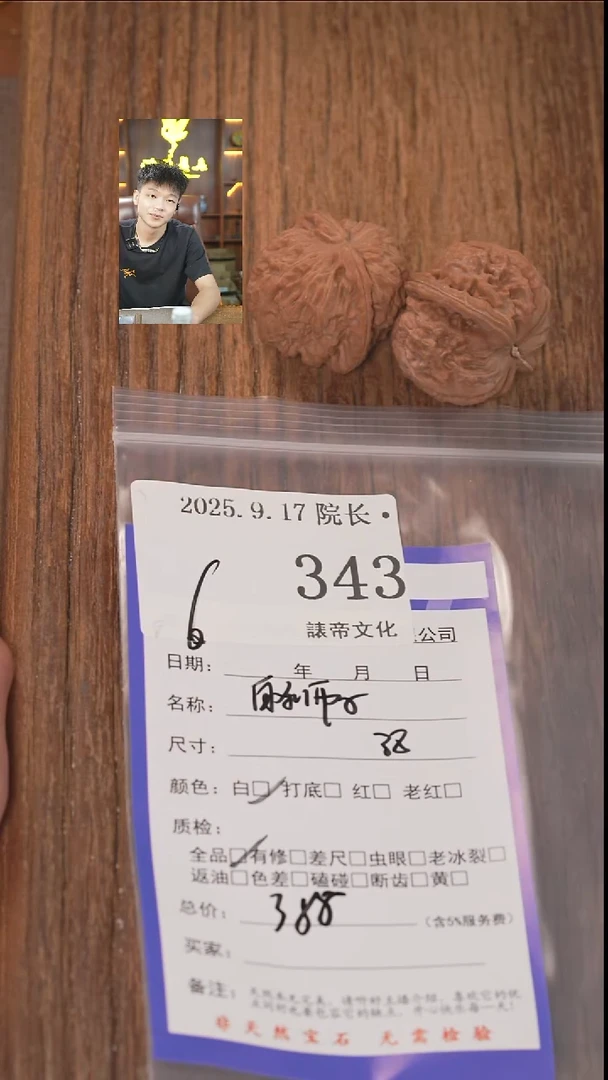 2025.9.17 院长·
343
6
諘帝文化
公司
日期： 年 月 日
名称：
尺寸：
颜色：白☑打底□ 红□ 老红□
质检：
全品☑有修□差尺□虫眼□老冰裂□
返油□色差□磕碰□断齿□黄□
总价：388（含5%服务费）
买家：
备注：
非天然宝石 无需检验